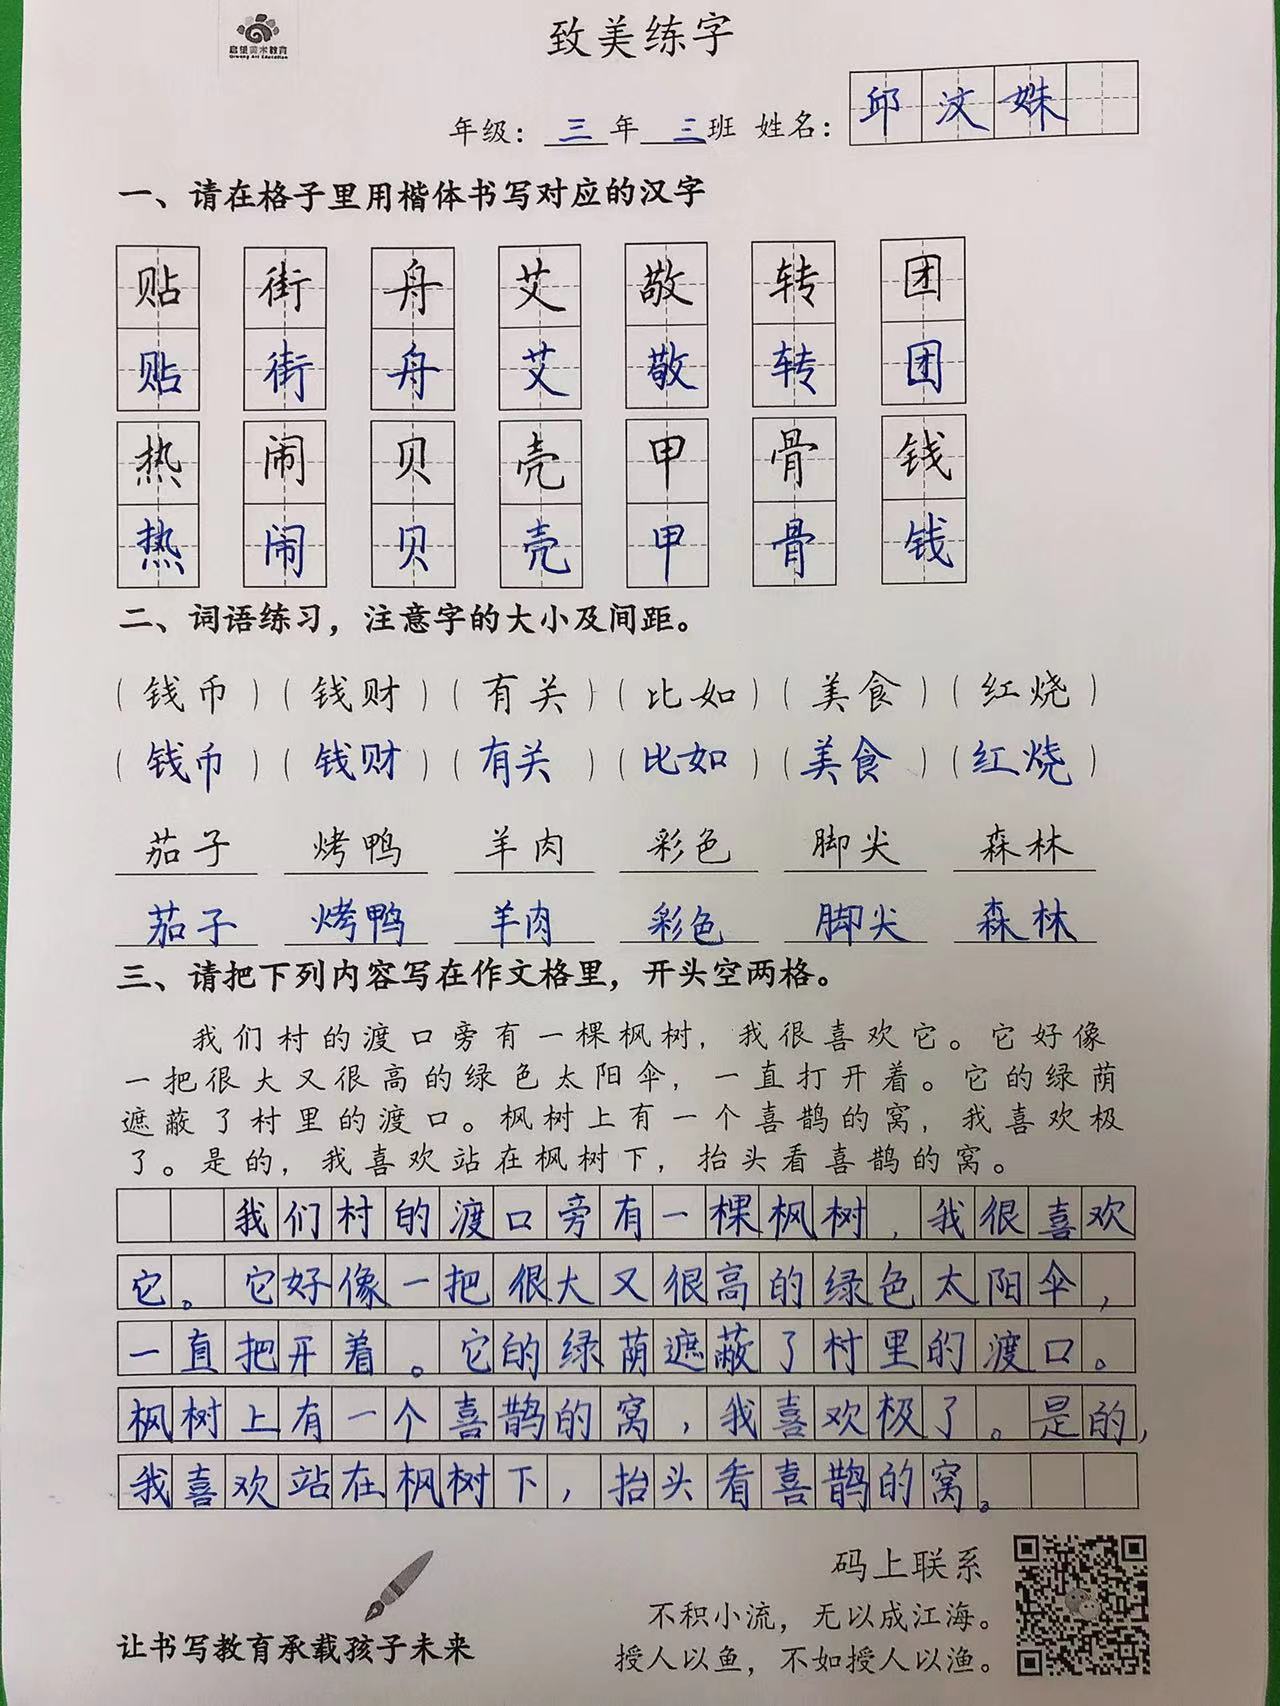 启望美术教育
Qiwang Art Education
致美练字
年级：三年三班 姓名：邱汶姝
一、请在格子里用楷体书写对应的汉字
贴 街 舟 艾 敬 转 团
贴 街 舟 艾 敬 转 团
热 闹 贝 壳 甲 骨 钱
热 闹 贝 壳 甲 骨 钱
二、词语练习，注意字的大小及间距。
（钱币）（钱财）（有关）（比如）（美食）（红烧）
（钱币）（钱财）（有关）（比如）（美食）（红烧）
茄子 烤鸭 羊肉 彩色 脚尖 森林
茄子 烤鸭 羊肉 彩色 脚尖 森林
三、请把下列内容写在作文格里，开头空两格。
我们村的渡口旁有一棵枫树，我很喜欢它。它好像
一把很大又很高的绿色太阳伞，一直打开着。它的绿荫
遮蔽了村里的渡口。枫树上有一个喜鹊的窝，我喜欢极
了。是的，我喜欢站在枫树下，抬头看喜鹊的窝。
我们村的渡口旁有一棵枫树，我很喜欢
它。它好像一把很大又很高的绿色太阳伞，
一直把开着。它的绿荫遮蔽了村里的渡口。
枫树上有一个喜鹊的窝，我喜欢极了。是的，
我喜欢站在枫树下，抬头看喜鹊的窝。
码上联系
不积小流，无以成江海。
让书写教育承载孩子未来
授人以鱼，不如授人以渔。